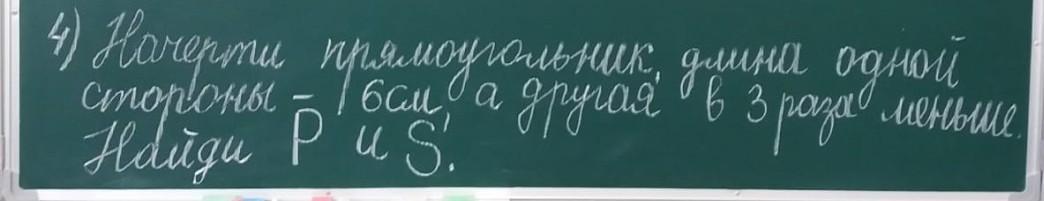 4) Начерти прямоугольник, длина одной
стороны – 6см, а другая в 3 раза меньше.
Найди P и S.